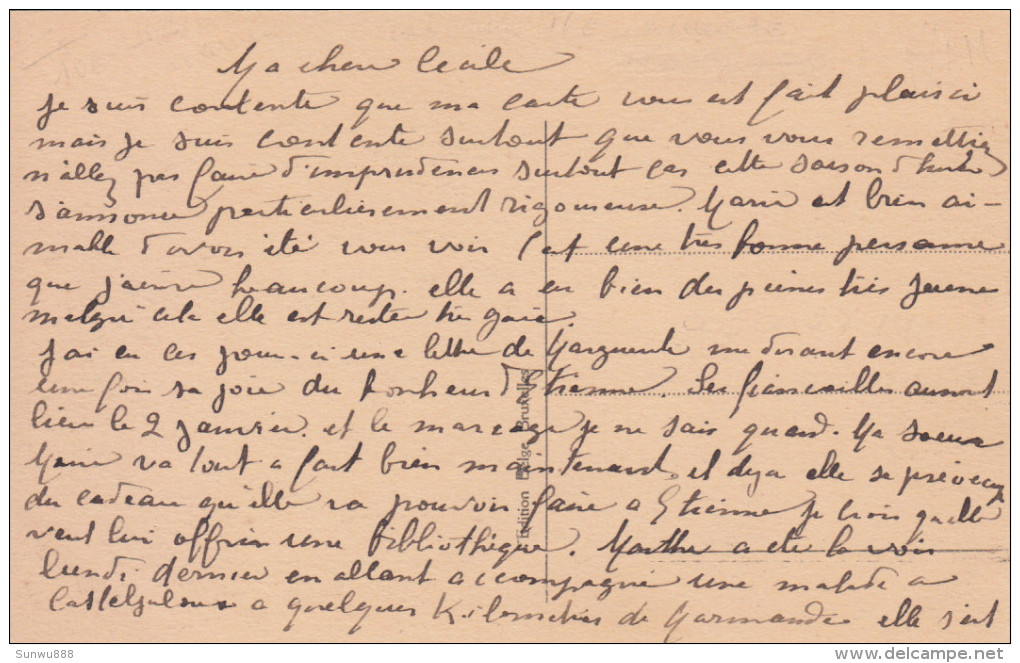 Ma chère Cécile
Je suis contente que ma carte vous est fait plaisir
mais je suis contente surtout que vous vous remettiez
n'allez pas faire d'imprudences surtout car cette saison d'hiver
s'annonce particulièrement rigoureuse. Marie est bien ai-
mable d'avoir été vous voir c'est une très bonne personne
que j'aime beaucoup. elle a eu bien des peines très jeune
malgré cela elle est restée très gaie
J'ai eu ces jours-ci une lettre de Marguerite me disant encore
une fois sa joie du bonheur d'Etienne. Les fiancailles auront
lieu le 2 Janvier. et le mariage je ne sais quand. Ma soeur
Marie va tout a fait bien maintenant, et deja elle se préoccupe
du cadeau qu'elle va pouvoir faire a Etienne je crois qu'elle
veut lui offrir une bibliothèque. Marthe a été la voir
lundi dernier en allant accompagné une malade a
Casteljaloux a quelques Kilomètres de Marmande elle s'est
Edition Belge, Bruxelles
Sunwu888
delcampe.net